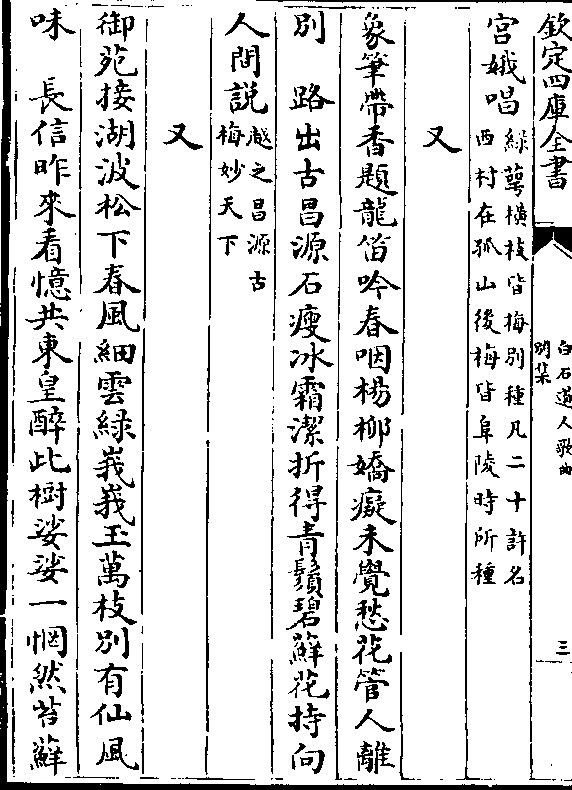 欽定四庫全書
白石道人歌曲
別集
三
宮娥唱綠萼橫枝皆梅別種凡二十許名
西村在孤山後梅皆阜陵時所種
又
象筆帶香題龍笛吟春咽楊柳嬌癡未覺愁花管人離
別　路出古昌源石瘦冰霜潔折得青鬚碧蘚花持向
人間說越之昌源古
梅妙天下
又
御苑接湖波松下春風細雲綠峩峩玉萬枝別有仙風
味　長信昨來看憶共東皇醉此樹娑娑一惘然苔蘚